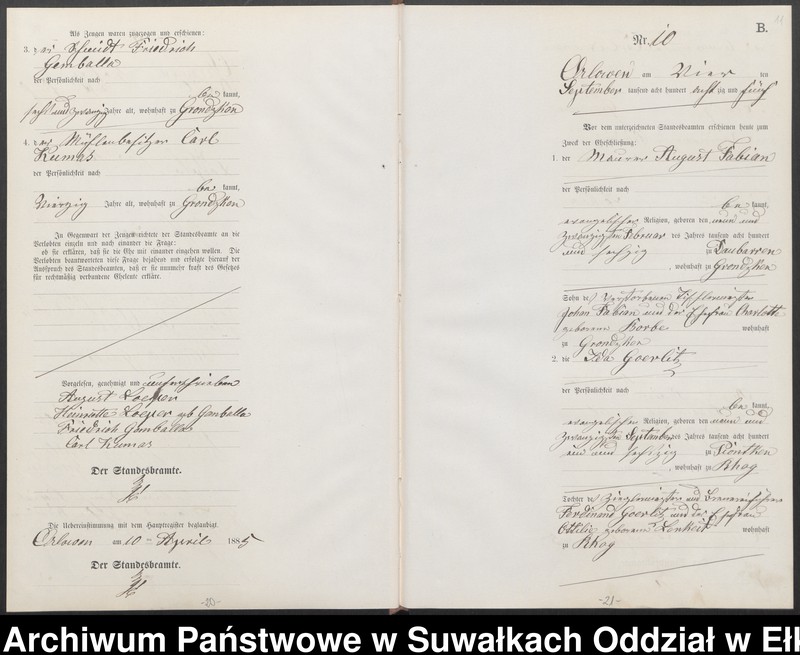 Als Zeugen waren zugezogen und erschienen:
3. der Schmidt Friedrich
Gomballa
der Persönlichkeit nach
be kannt,
sechs und zwanzig Jahre alt, wohnhaft zu Grondzken
4. der Mühlenbesitzer Carl
Kumas
der Persönlichkeit nach
be kannt,
Vierzig Jahre alt, wohnhaft zu Grondzken
In Gegenwart der Zeugen richtete der Standesbeamte an die
Verlobten einzeln und nach einander die Frage:
ob sie erklären, daß sie die Ehe mit einander eingehen wollen. Die
Verlobten beantworteten diese Frage bejahend und erfolgte hierauf der
Ausspruch des Standesbeamten, daß er sie nunmehr kraft des Gesetzes
für rechtmäßig verbundene Eheleute erkläre.
Vorgelesen, genehmigt und unterschrieben
August Loeper
Heinriette Loeper geb Gomballa
Friedrich Gomballa
Carl Kumas
Der Standesbeamte.
Die Uebereinstimmung mit dem Hauptregister beglaubigt.
Orlowen am 10 ten April 1885
Der Standesbeamte.
-20-
11
B.
Nr. 10
Orlowen am Vier ten
September tausend acht hundert acht zig und fünf
Vor dem unterzeichneten Standesbeamten erschienen heute zum
Zweck der Eheschließung:
1. der Maurer August Fabian
der Persönlichkeit nach
be kannt,
evangelischer Religion, geboren den neun und
zwanzigsten Februar des Jahres tausend acht hundert
und sechzig zu Daubarren
, wohnhaft zu Grondzken
Sohn des verstorbenen Tischlermeister
Johan Fabian und der Ehefrau Charlotte
geborene Korbe wohnhaft
zu Grondzken
2. die Ida Goerlitz
der Persönlichkeit nach
be kannt,
evangelischer Religion, geboren den neun und
zwanzigsten September des Jahres tausend acht hundert
ein und sechszig zu Piontken
, wohnhaft zu Rhog
Tochter des Zieglermeister und
Ferdinand Goerlitz und der Ehefrau
Ottilie geborene Lenkeit wohnhaft
zu Rhog
-21-
Archiwum Państwowe w Suwałkach Oddział w Ełk